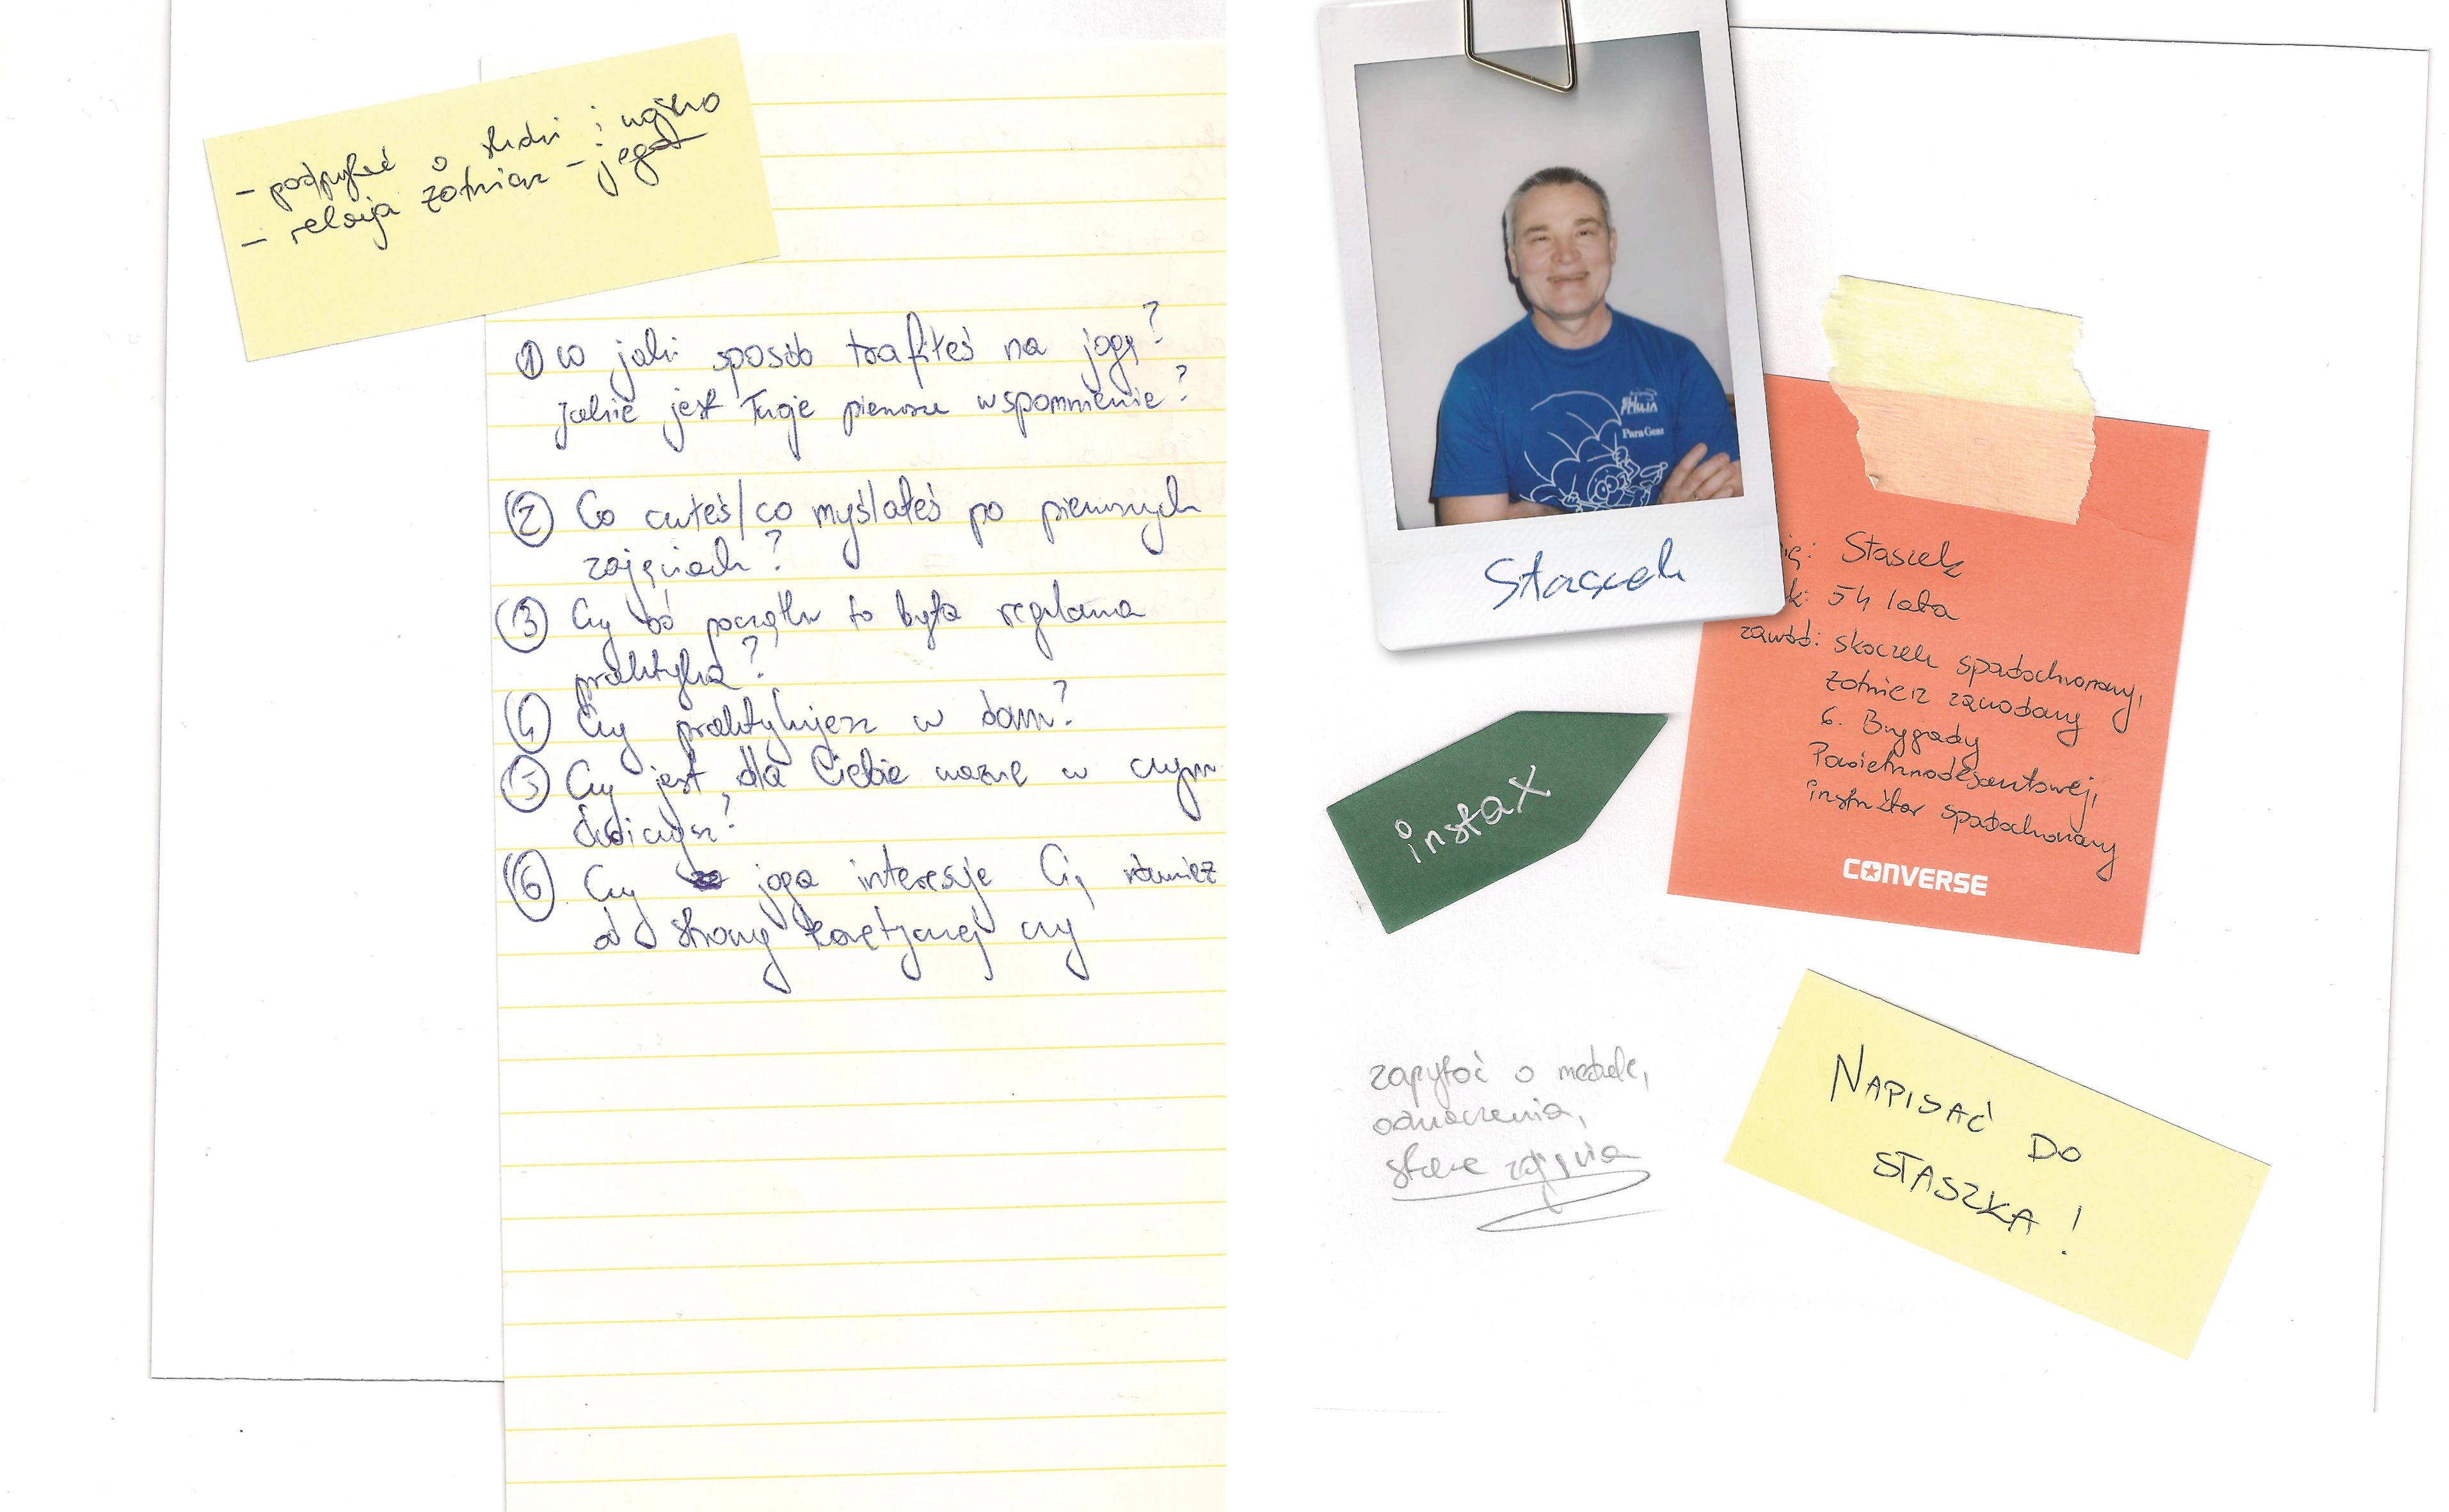 - podpytać o studni i wojsko
- relacja żołnierz - joga
① W jaki sposób trafiłeś na jogę?
Jakie jest Twoje pierwsze wspomnienie?
② Co czułeś/co myślałeś po pierwszych
zajęciach?
③ Czy od początku to była regularna
praktyka?
④ Czy praktykujesz w domu?
⑤ Czy jest dla Ciebie ważne w czym
ćwiczysz?
⑥ Czy joga interesuje Cię również
od strony teoretycznej czy
SKY
FRAJDA
ParaGear
Staszek
imię: Staszek
wiek: 54 lata
zawód: skoczek spadochronowy,
żołnierz zawodowy
6. Brygady
Powietrznodesantowej,
instruktor spadochronowy
CONVERSE
instax
zapytać o medale,
odznaczenia,
stare zdjęcia
NAPISAĆ DO
STASZKA!